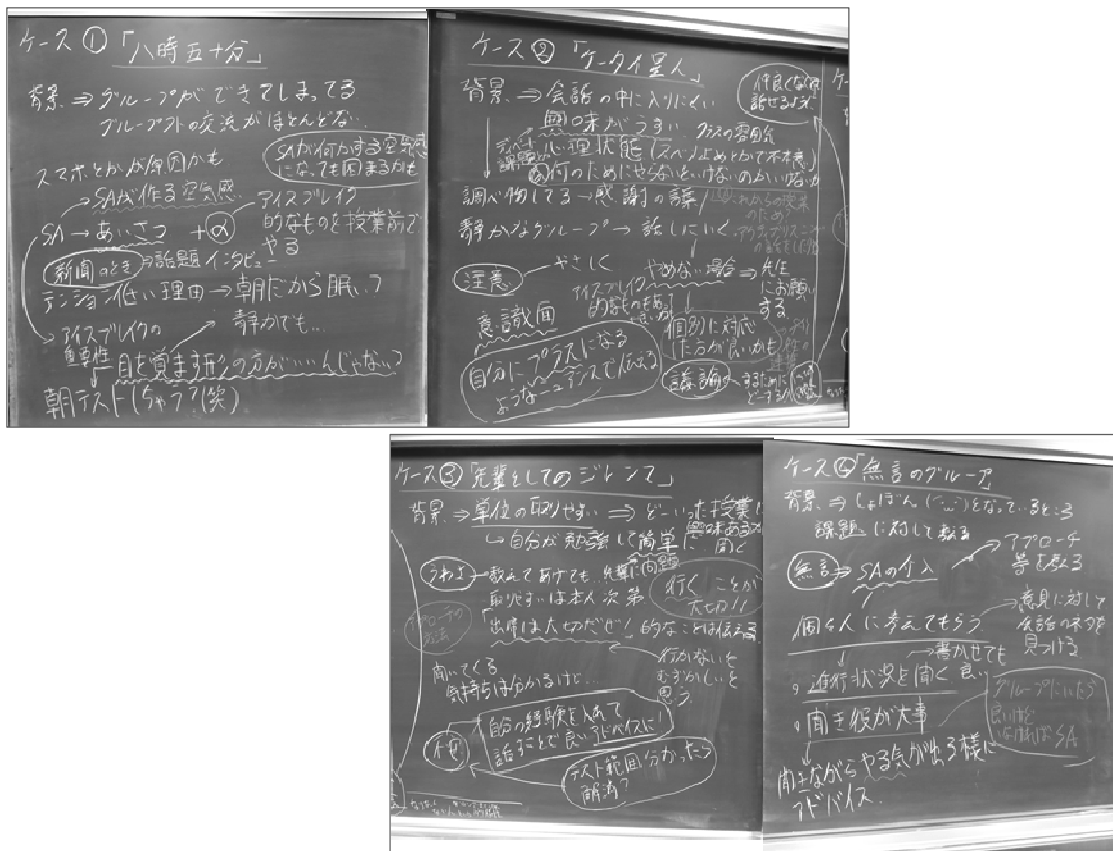 ケース①「八時五十分」
背景⇒グループができてしまってる
グループ外の交流がほとんどない
スマホとかが原因かも
SAが何かする空気感
になっても困まるかも
SAが作る空気感
SA→あいさつ+α
アイスブレイク
的なものを授業前で
やる
新聞のとき→話題インタビュー
テンション低い理由→朝だから眠い?
静かでも…
アイスブレイクの
重要性
目を覚ます形の方がいいんじゃない?
朝テスト(ちゃう?(笑)
ケース②「ケータイ星人」
仲良くなれば
話せるよね
背景⇒会話の中に入りにくい
興味がうすい クラスの雰囲気
課題
心理状態
何のためにやらないといけないのか
調べ物してる→感謝の言葉
静かなグループ→話しにいく
注意
やさしく
やめない場合⇒先生
にお願い
する
アイスブレイク
意識面
個別に対応
した方が良いかも
自分にプラスになる
ようなニュアンスで伝える
議論
するために
どーする
ケース③「先輩としてのジレンマ」
背景→単位の取りやすい⇒どーいった授業に
興味あるか
聞く
自分が勉強して簡単に
うわさ
教えてあげても…先輩に問題
取りやすいは本人次第
行くことが
大切!!
アプローチの
方法
「出席は大切だぜ!」的なことは伝える
行かないと
むずかしいと
思う
聞いてくる
気持ちは分かるけど…
自分の経験を入れて
話すことで良いアドバイスに!
テスト範囲分かったら
解消?
ケース④「無言のグループ」
背景⇒しょぼんとなっているところ
課題に対して
無言⇒SAの介入
アプローチ
等を考える
個々人に考えてもらう
意見に対して
会話のネタを
見つける
書かせても
良い
進行状況を聞く
聞き役が大事
グループにいたら
良いけど
いなければSA
聞きながらやる気が出る様に
アドバイス